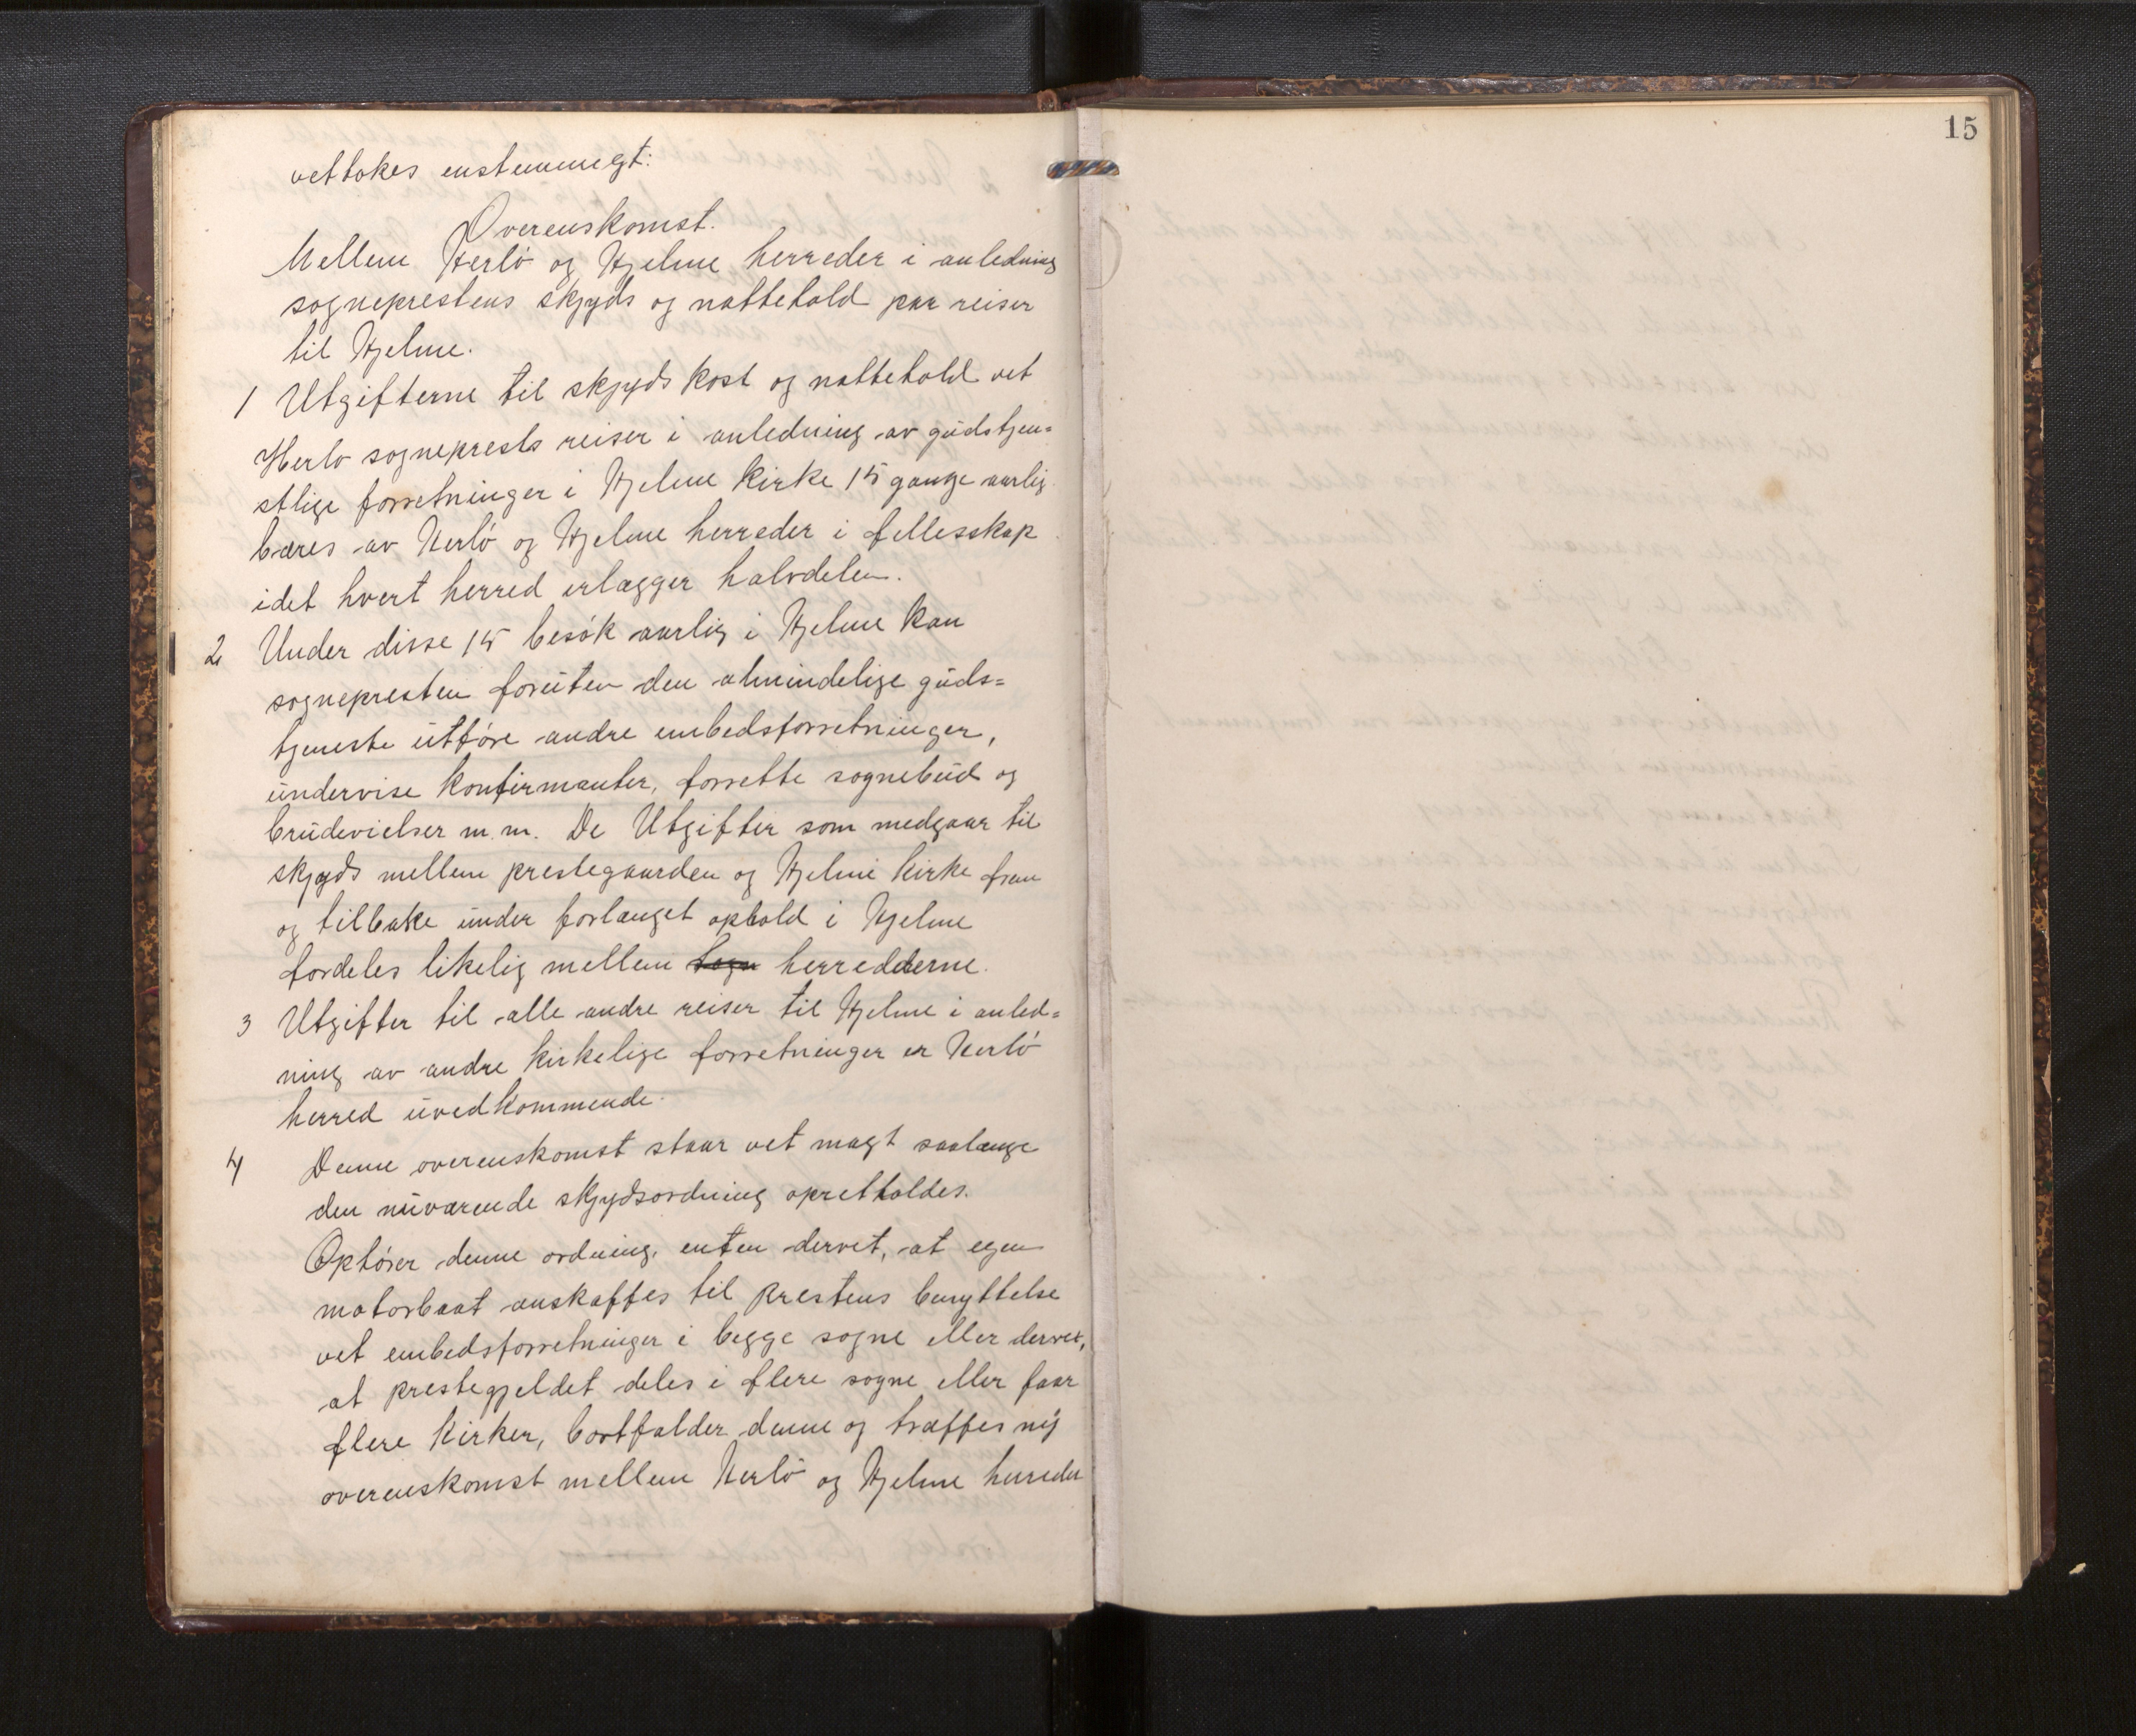 vettokes enstemmegt:
Overenskomst.
Mellem Herlö og Hjelme herreder i anledning
sogneprestens skjyds og nattehold paa reiser
til Hjelme.
1 Utgifterne til skjyds kost og nattehold vet
Herlö sogneprests reiser i anledning av gudstjen=
stlige forretninger i Hjelme kirke 15 gange aarlig
bæres av Herlö og Hjelme herreder i fellesskap
idet hvert herred erlægger halvdelen.
2 Under disse 15 besök aarlig i Hjelme kan
sognepresten foruten den almindelige guds=
tjeneste utföre andre embedsforretninger,
undervise konfirmanter, forrette sognebud og
brudevielser m.m. De Utgifter som medgaar til
skjyds mellem prestegaarden og Hjelme kirke frem
og tilbake under forlænget ophold i Hjelme
fordeles likelig mellem sogn herrederne.
3 Utgifter til alle andre reiser til Hjelme i anled=
ning av andre kirkelige forretninger er Herlö
herred uvedkommende.
4 Denne overenskomst staar vet magt saalænge
den nuværende skjydsordning opretholdes.
Ophörer denne ordning, enten dervet, at egen
motorbaat anskaffes til prestens benyttelse
vet embedsforretninger i begge sogne eller dervet,
at prestegjeldet deles i flere sogne eller faar
flere kirker, bortfalder denne og træffes ny
overenskomst mellem Herlö og Hjelme herreder
15